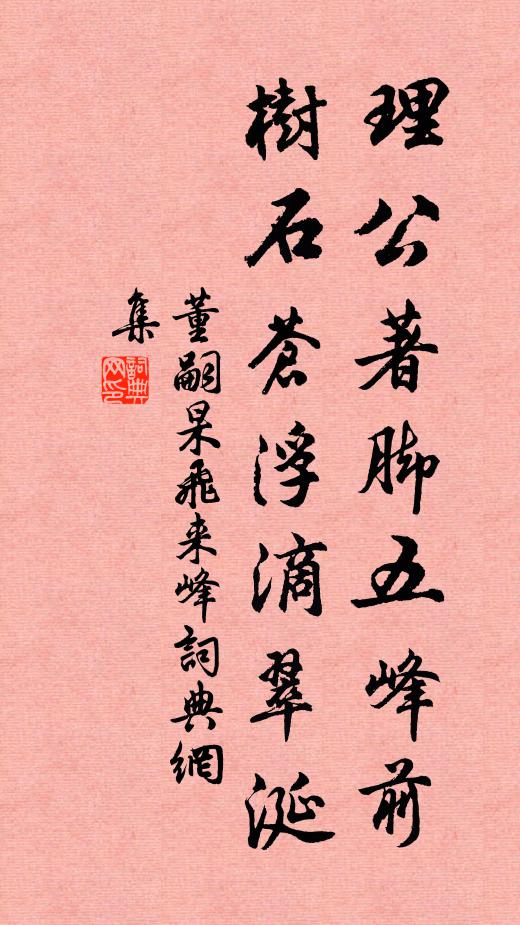 理公著脚五峰前
樹石蒼浮滴翠涎
董嗣杲飛来峰詞典網
集
詞典
网印